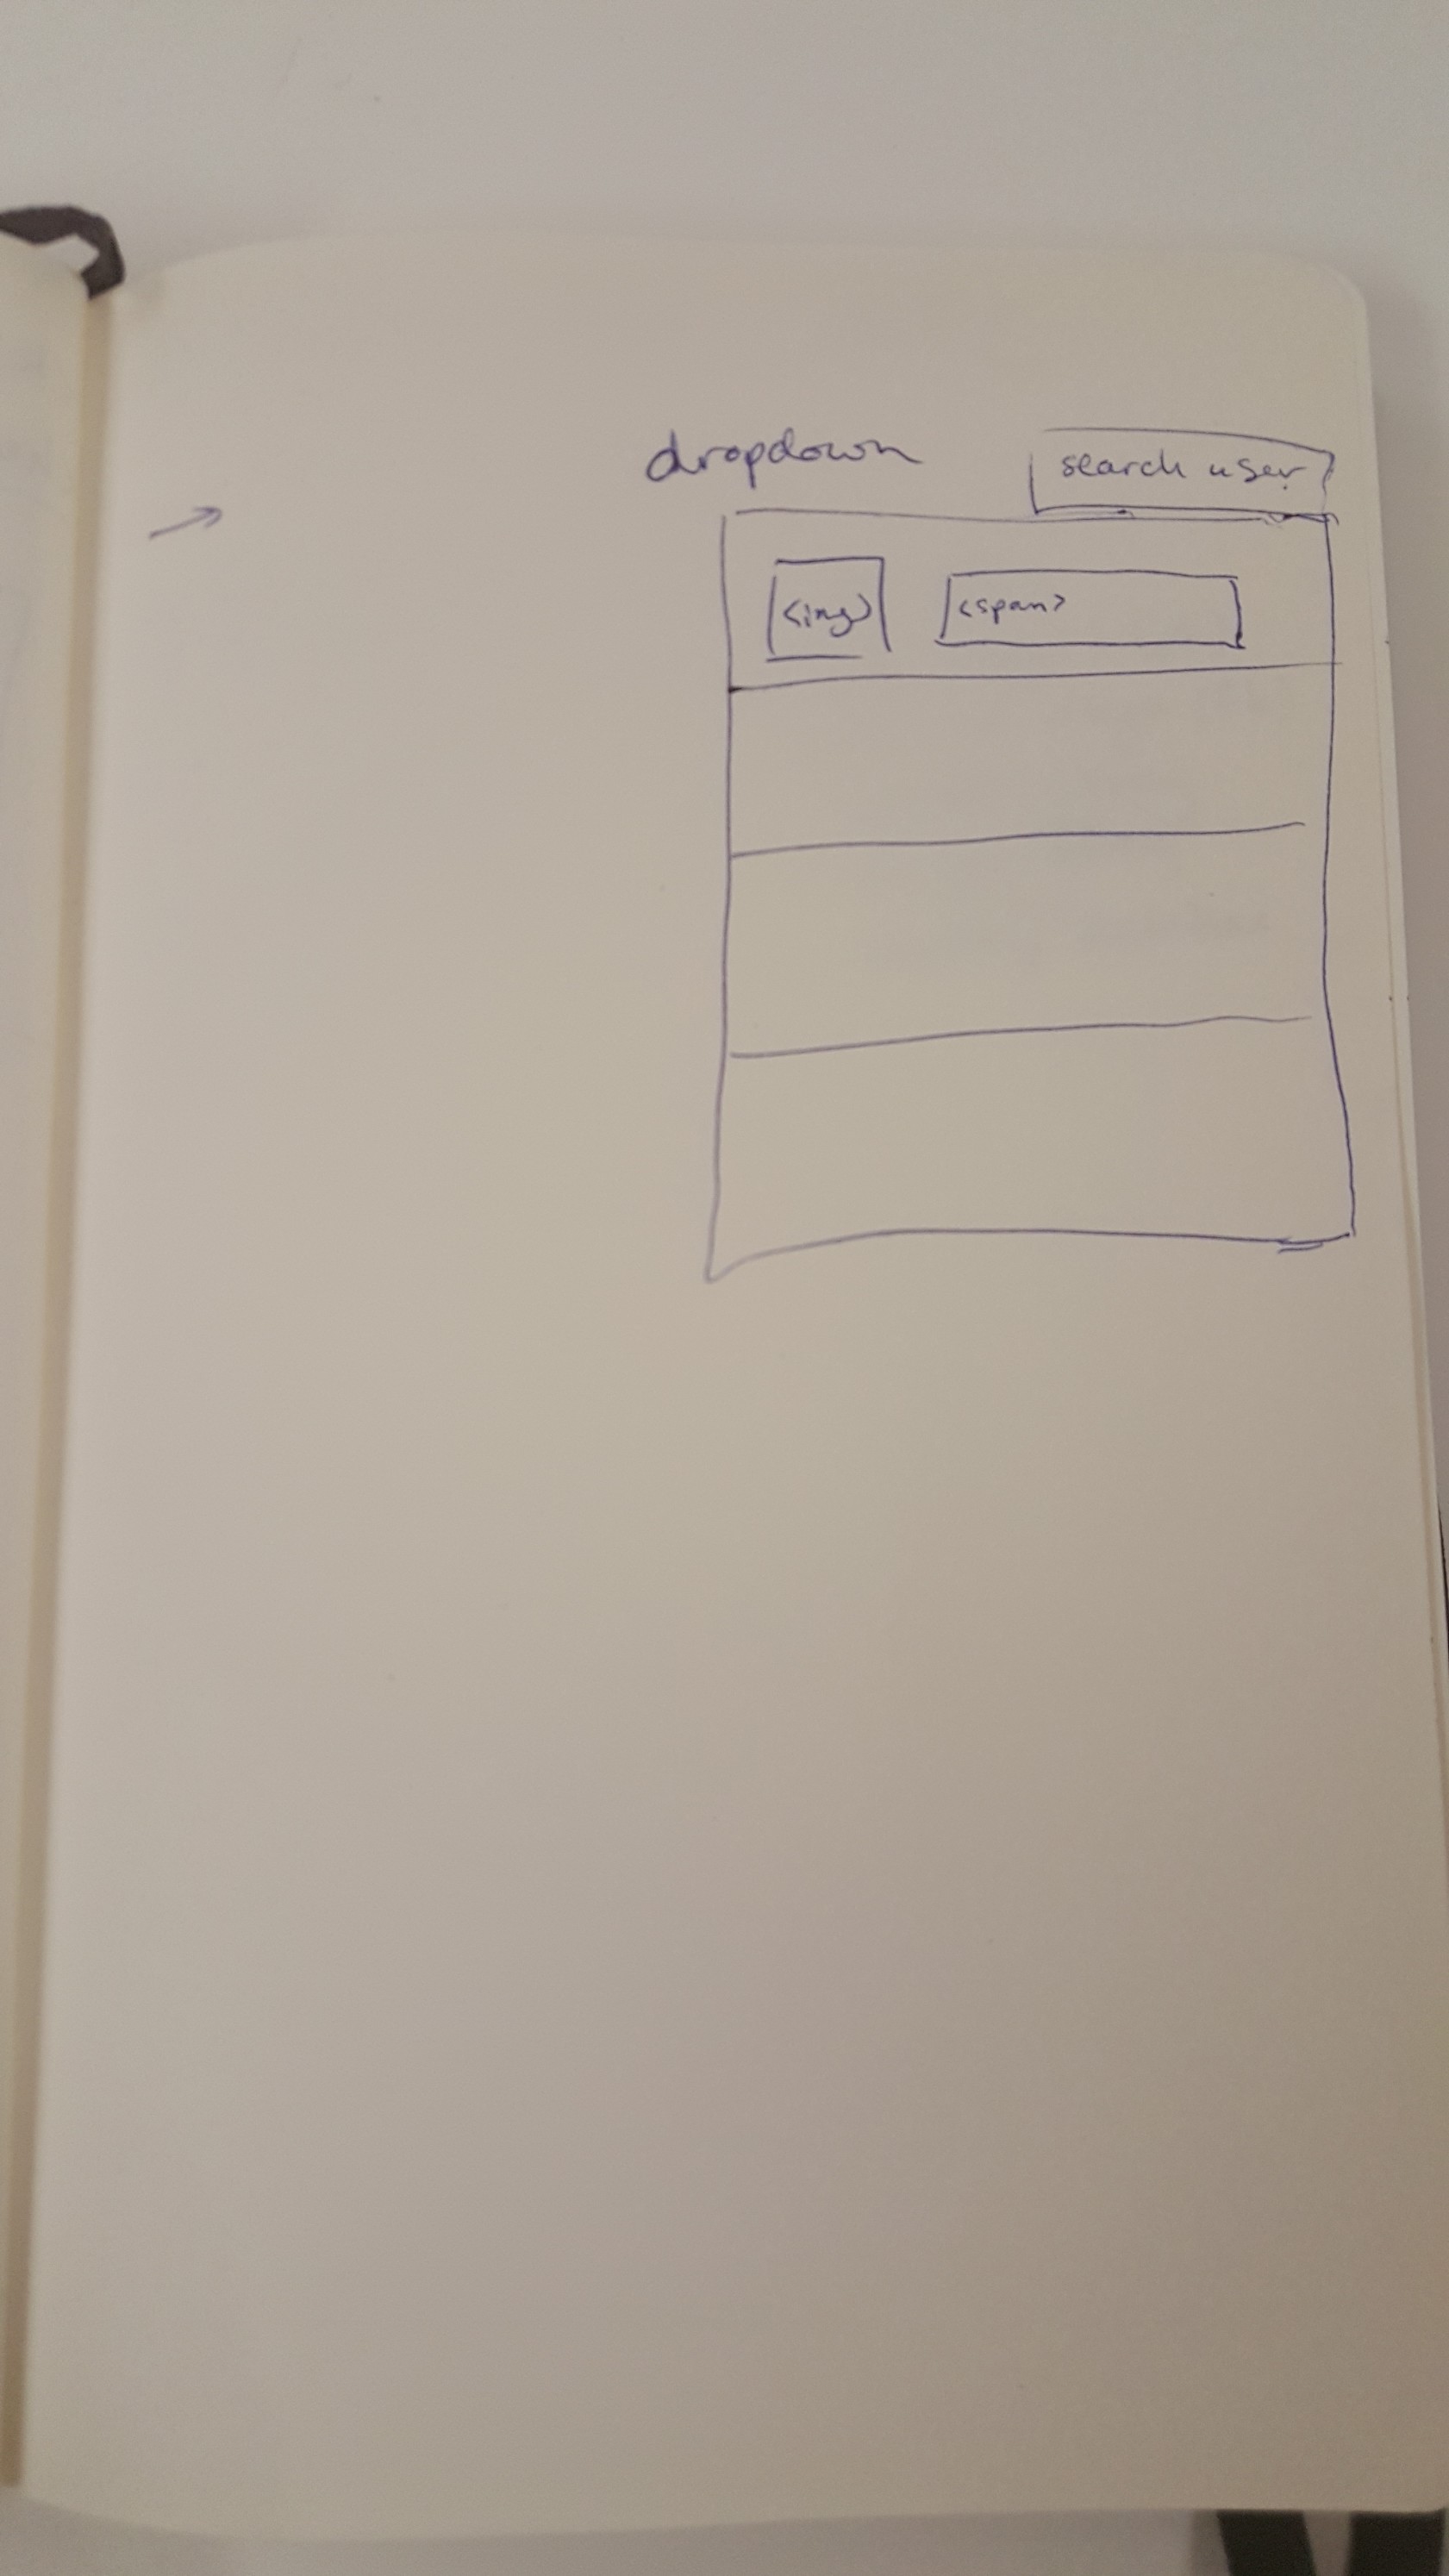 dropdown
search user
<img>
<span>